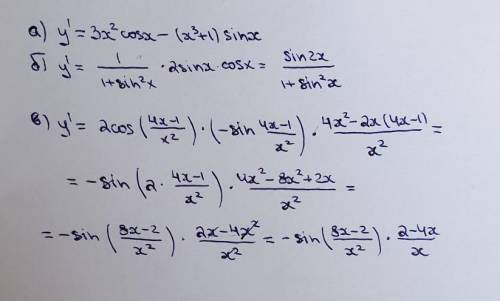 а) y' = 3x² cosx - (x³+1) sinx
б) y' = 1/(1+sin²x) · 2sinx · cosx = sin2x/(1+sin²x)
в) y' = 2cos((4x-1)/x²) · (-sin (4x-1)/x²) · (4x²-2x(4x-1))/x² =
= -sin(2 · (4x-1)/x²) · (4x²-8x²+2x)/x² =
= -sin((8x-2)/x²) · (2x-4x²)/x² = -sin((8x-2)/x²) · (2-4x)/x